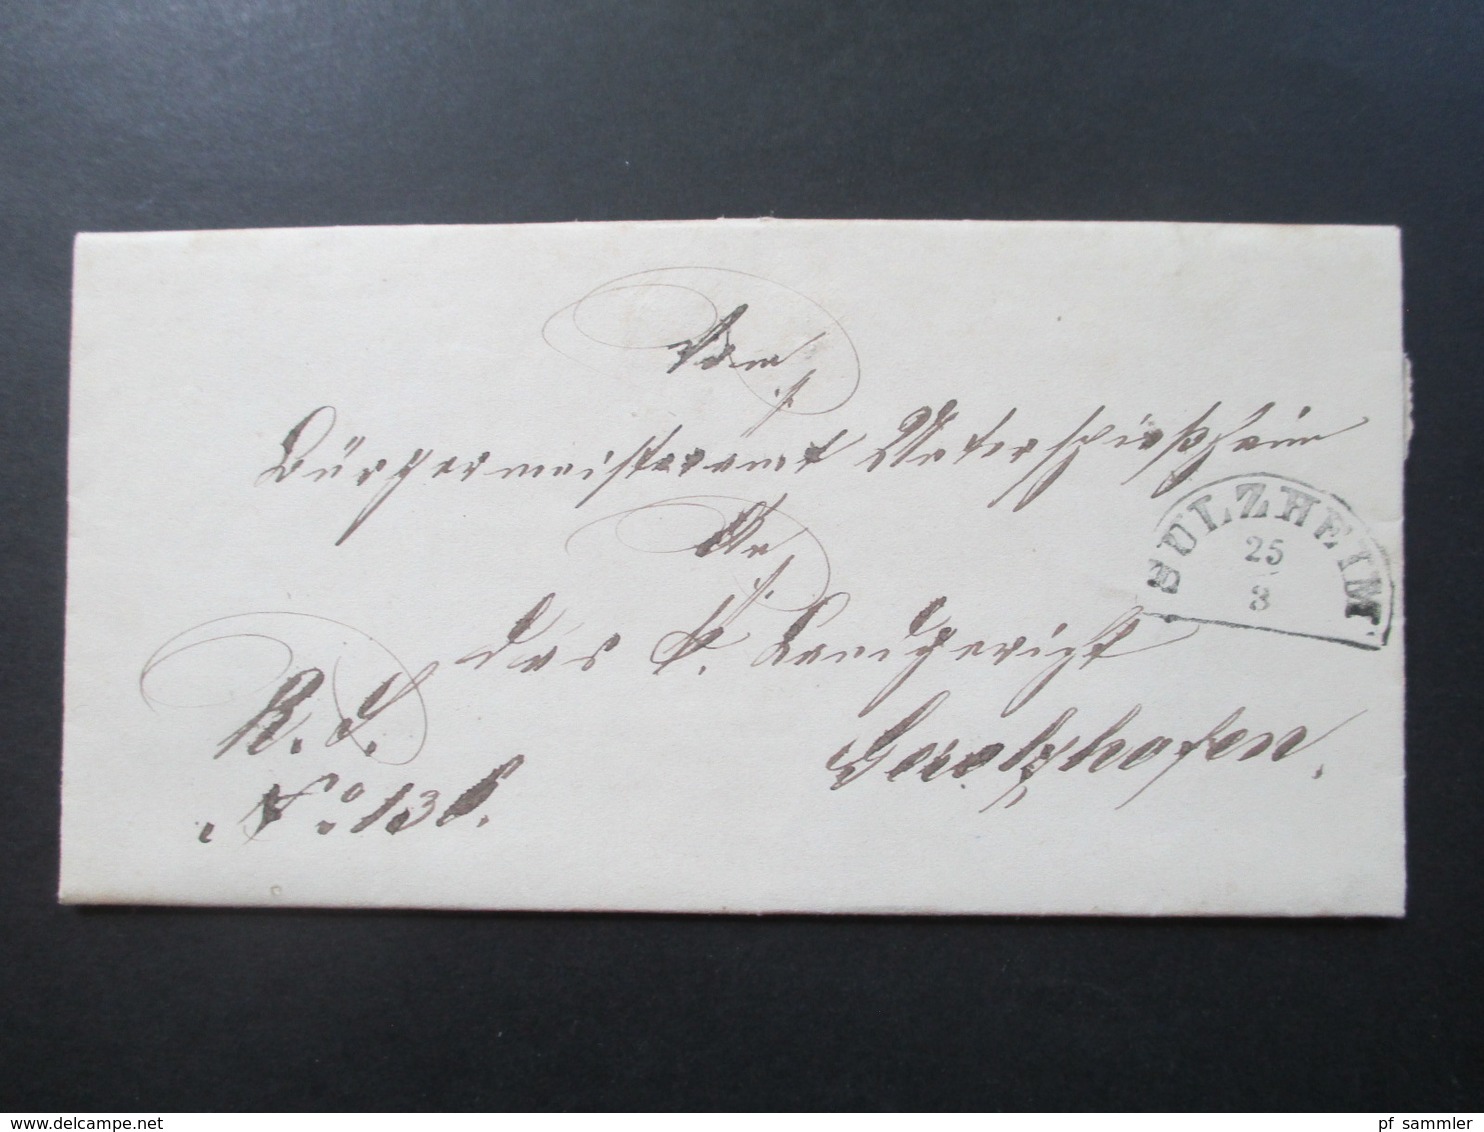 Vom
Bürgermeisteramt Unterspiesheim
An
das k. Landgericht
Gerolzhofen.
R. S.
No. 136.
SULZHEIM
25
3
www.delcampe.net
pf_sammler